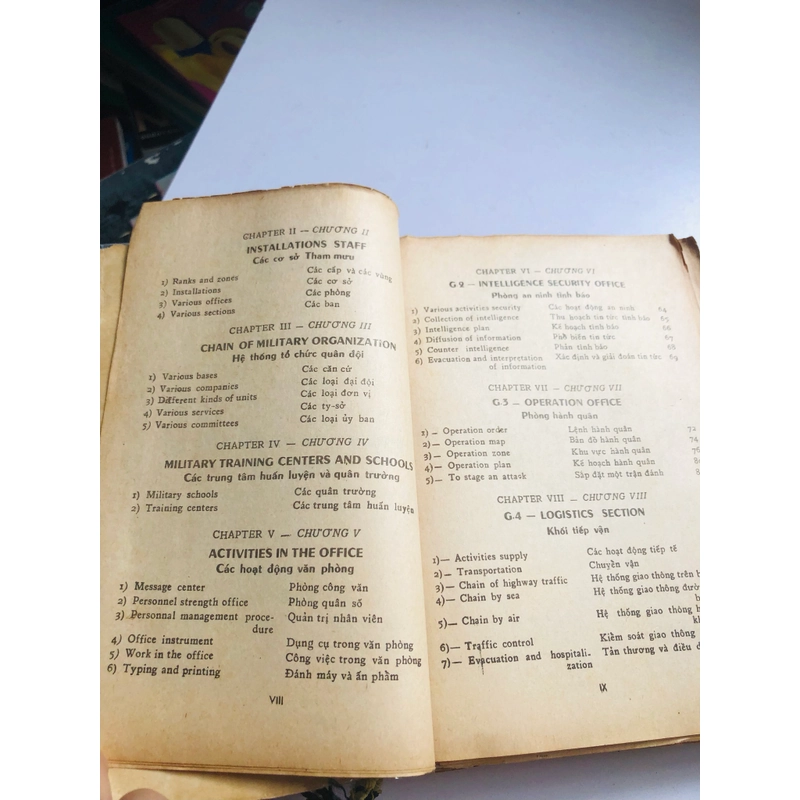 CHAPTER II — CHƯƠNG II
INSTALLATIONS STAFF
Các cơ sở Tham mưu
1) Ranks and zones Các cấp và các vùng
2) Installations Các cơ sở
3) Various offices Các phòng
4) Various sections Các ban
CHAPTER III — CHƯƠNG III
CHAIN OF MILITARY ORGANIZATION
Hệ thống tổ chức quân đội
1) Various bases Các căn cứ
2) Various companies Các loại đại đội
3) Different kinds of units Các loại đơn vị
4) Various services Các ty-sở
5) Various committees Các loại ủy ban
CHAPTER IV — CHƯƠNG IV
MILITARY TRAINING CENTERS AND SCHOOLS
Các trung tâm huấn luyện và quân trường
1) Military schools Các quân trường
2) Training centers Các trung tâm huấn luyện
CHAPTER V — CHƯƠNG V
ACTIVITIES IN THE OFFICE
Các hoạt động văn phòng
1) Message center Phòng công văn
2) Personnel strength office Phòng quân số
3) Personnal management proce- Quản trị nhân viên
dure
4) Office instrument Dụng cụ trong văn phòng
5) Work in the office Công việc trong văn phòng
6) Typing and printing Đánh máy và ấn phẩm
VIII
CHAPTER VI — CHƯƠNG VI
G.2 — INTELLIGENCE SECURITY OFFICE
Phòng an ninh tình báo
1) Various activities security Các hoạt động an ninh 64
2) Collection of intelligence Thu hoạch tin tức tình báo 65
3) Intelligence plan Kế hoạch tình báo 66
4) Diffusion of information Phổ biến tin tức 68
5) Counter intelligence Phản tình báo 68
6) Evacuation and interpretation Xác định và giải đoán tin tức 69
of information
CHAPTER VII — CHƯƠNG VII
G.3 — OPERATION OFFICE
Phòng hành quân
1) — Operation order Lệnh hành quân 72
2) — Operation map Bản đồ hành quân 74
3) — Operation zone Khu vực hành quân
4) — Operation plan Kế hoạch hành quân
5) — To stage an attask Sắp đặt một trận đánh
CHAPTER VIII — CHƯƠNG VIII
G.4 — LOGISTICS SECTION
Khối tiếp vận
1) — Activities supply Các hoạt động tiếp tế
2) — Transportation Chuyển vận
3) — Chain of highway traffic Hệ thống giao thông trên
4) — Chain by sea Hệ thống giao thông
5) — Chain by air Hệ thống giao thông
6) — Traffic control Kiểm soát giao thông
7) — Evacuation and hospitali- Tản thương và điều
zation
IX